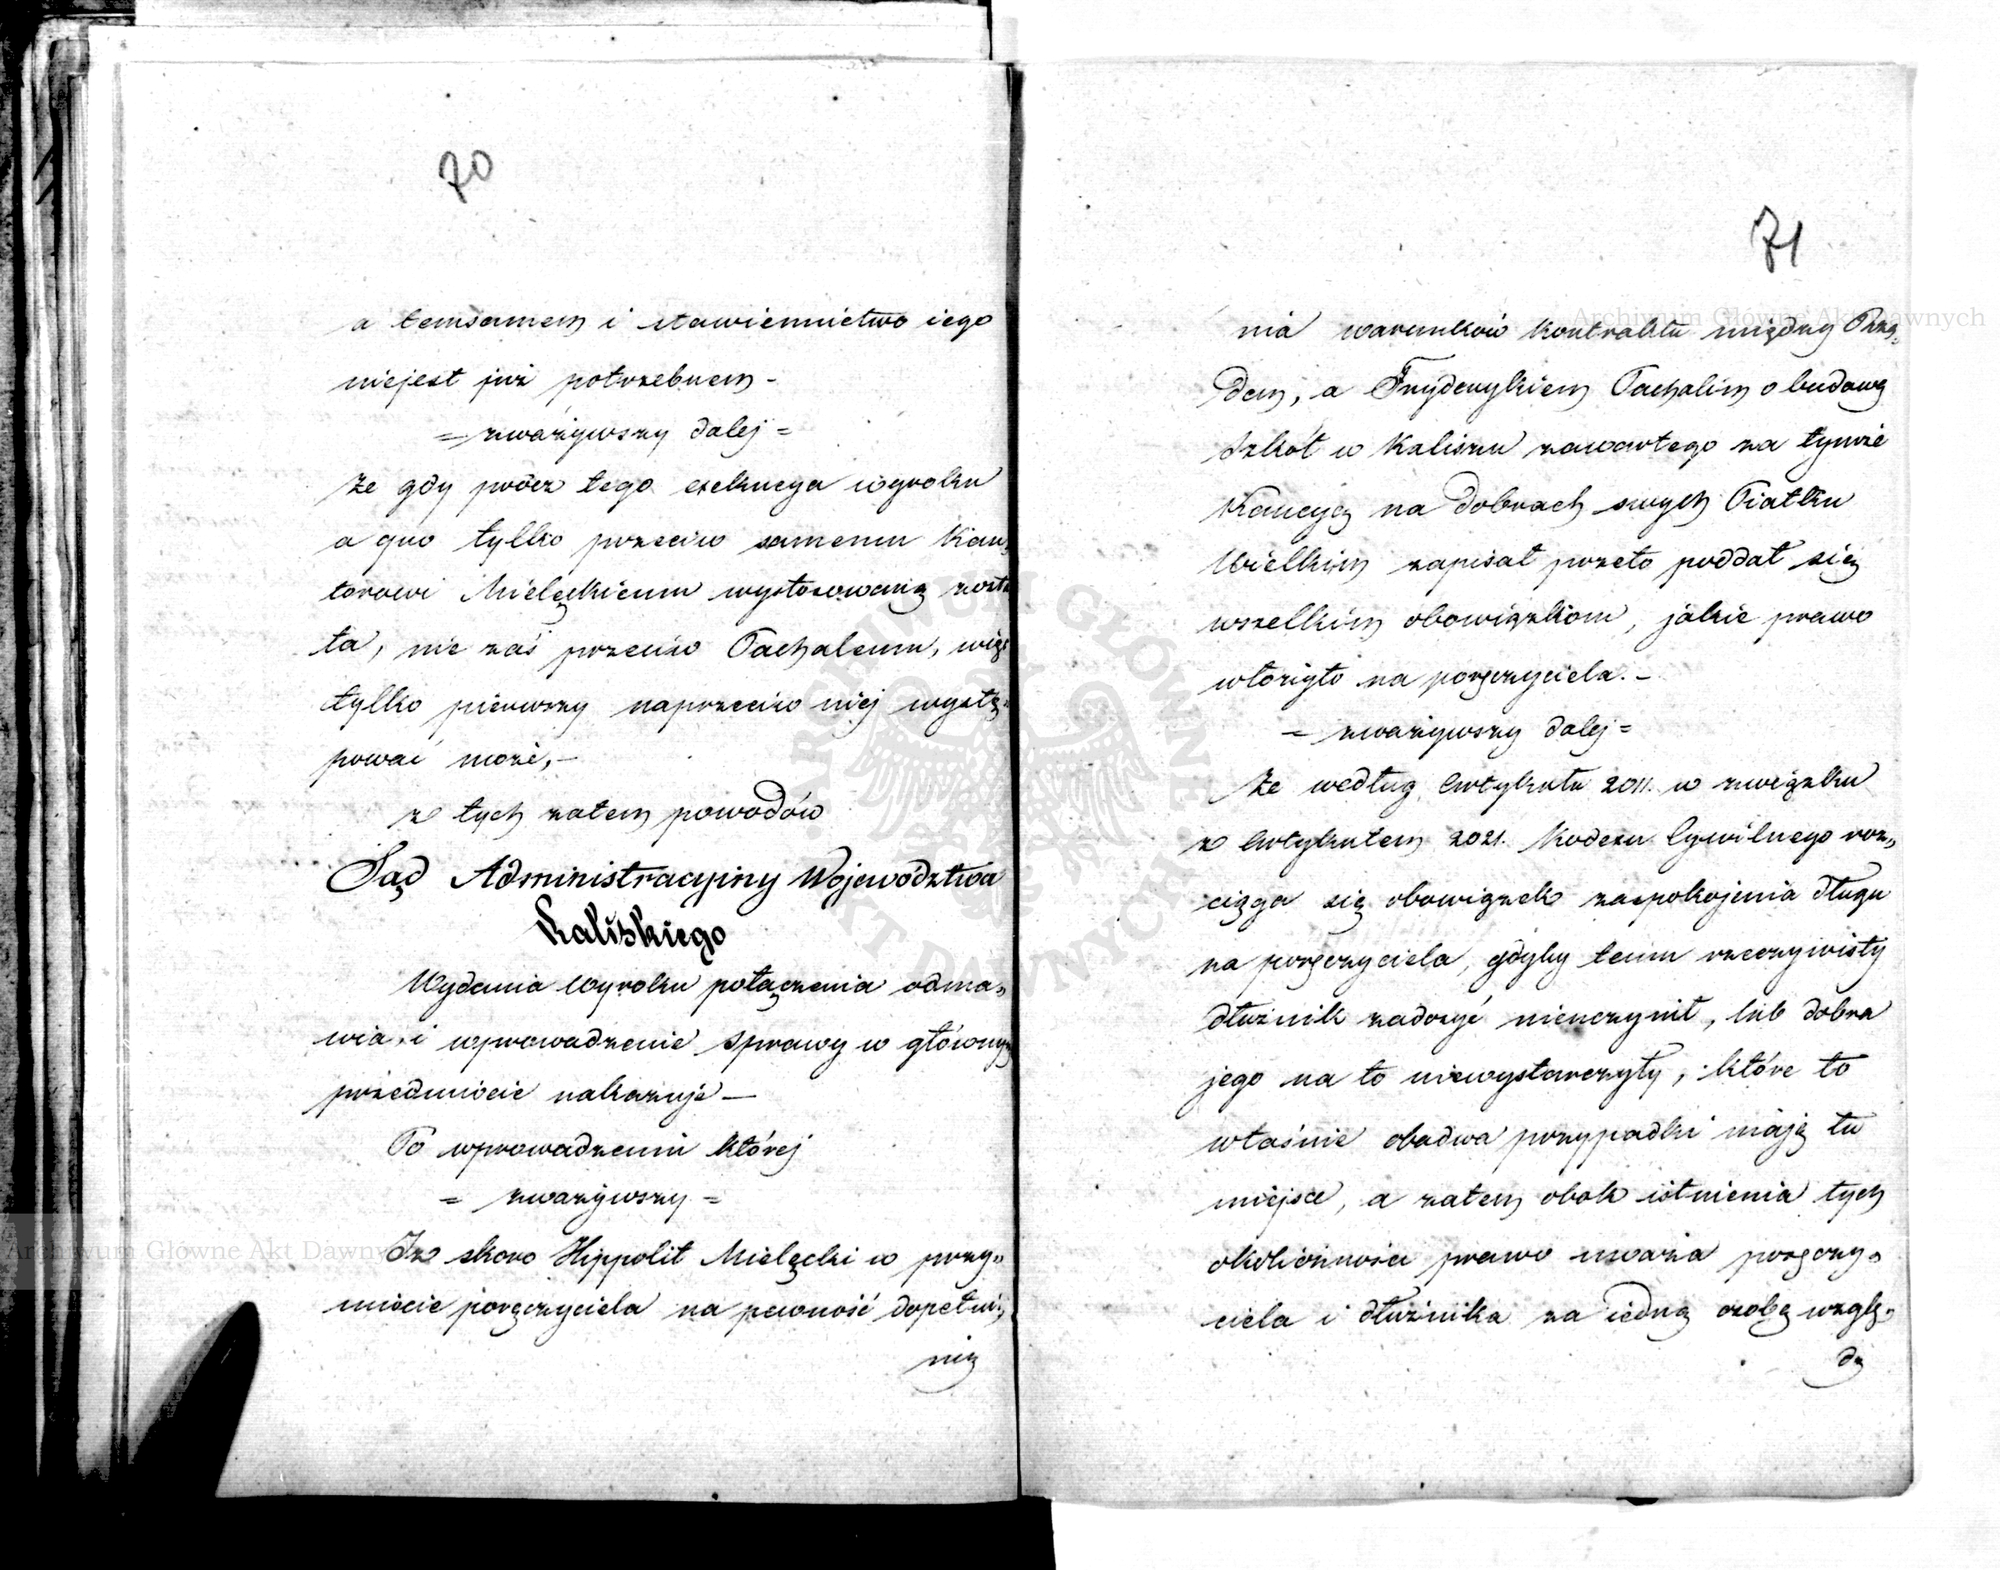 70
a temsamem i stawiennictwo iego
niejest już potrzebnem -
= zważywszy dalej =
Że gdy prócz tego exekucya wyroku
a quo tylko przeciw samemu Kan,
torowi Mielęckiemu wystosowaną zosta
ła, nie zaś przeciw Pachalemu, więc
tylko pierwszy naprzeciw niej wystę-
pować może, -
z tych zatem powodów
Sąd Administracyiny Województwa
Kaliskiego
Wydania Wyroku połączenia odma,,
wia, i wprowadzenie sprawy w głównym
przedmiocie nakazuje —
Po wprowadzeniu której
= zważywszy =
Iż skoro Hippolit Mielęcki w przy,,
miocie poręczyciela na pewność dopełnie,
nia
71
nia warunków kontraktu między Rzą-
dem, a Frydrykiem Pachalim o budowę
Szkół w Kaliszu zawartego za tymże
Kaucyę na dobrach swych Piątku
Wielkim zapisał przeto poddał się
wszelkim obowiązkom, jakie prawo
włożyło na poręczyciela. -
= zważywszy dalej =
Że według Artykułu 2011. w związku
z Artykułem 2021. Kodexu Cywilnego roz,,
ciąga się obowiązek zaspokojenia długu
na poręczyciela, gdyby temu rzeczywisty
dłużnik zadosyć nieuczynił, lub dobra
jego na to niewystarczyły, które to
właśnie obadwa przypadki mają tu
miejsce, a zatem obok istnienia tych
okoliczności prawo uważa poręczy,,
ciela i dłużnika za iedną osobę wzglę,,
dę
Archiwum Główne Akt Dawnych
Archiwum Główne Akt Dawnych
ARCHIWUM GŁÓWNE AKT DAWNYCH